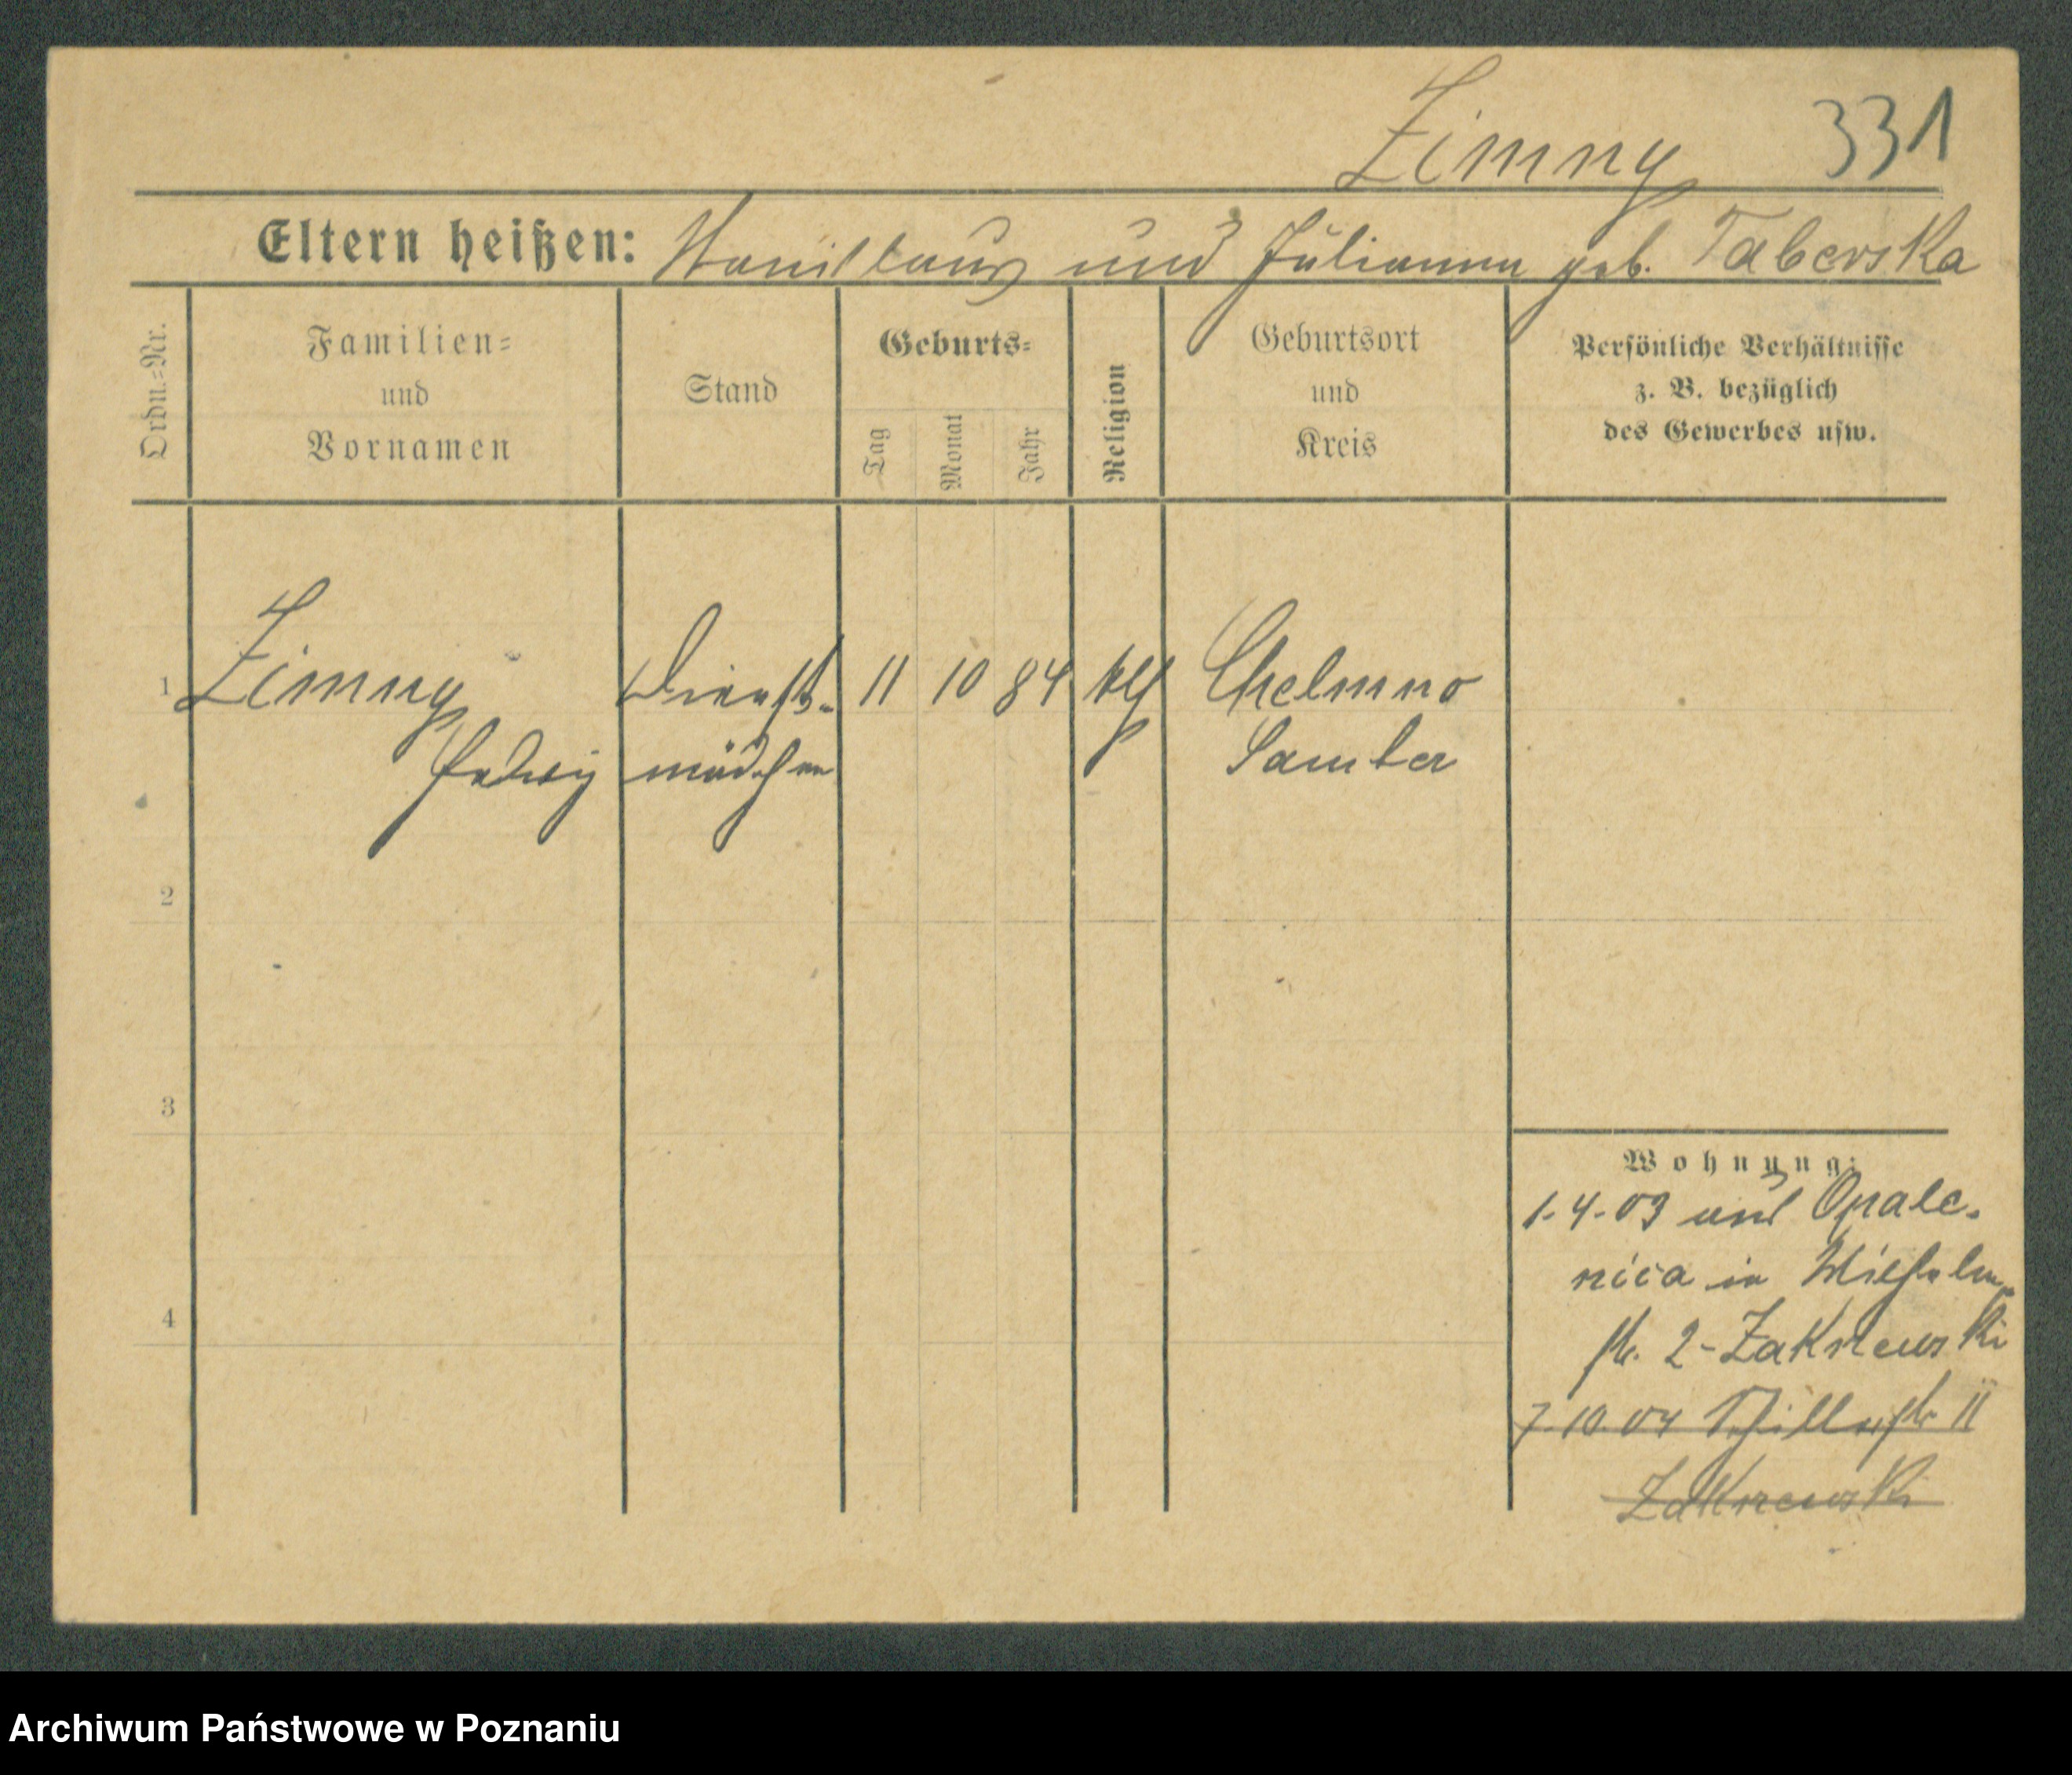 Zimny 331
Eltern heißen: Stanislaus und Julianna geb. Taberska
Ordn.=Nr.
Familien=
und
Vornamen
Stand
Geburts=
Tag
Monat
Jahr
Religion
Geburtsort
und
Kreis
Persönliche Verhältnisse
z. B. bezüglich
des Gewerbes usw.
1 Zimny Dienst- 11 10 84 kth Chelmno
Hedwig mädchen Samter
2
3
4
Wohnung:
1-4-03 aus Opale-
nica in Wilhelm-
str. 2-Zakrzewski
7-10.04 Schillerstr 11
Zakrzewski
Archiwum Państwowe w Poznaniu